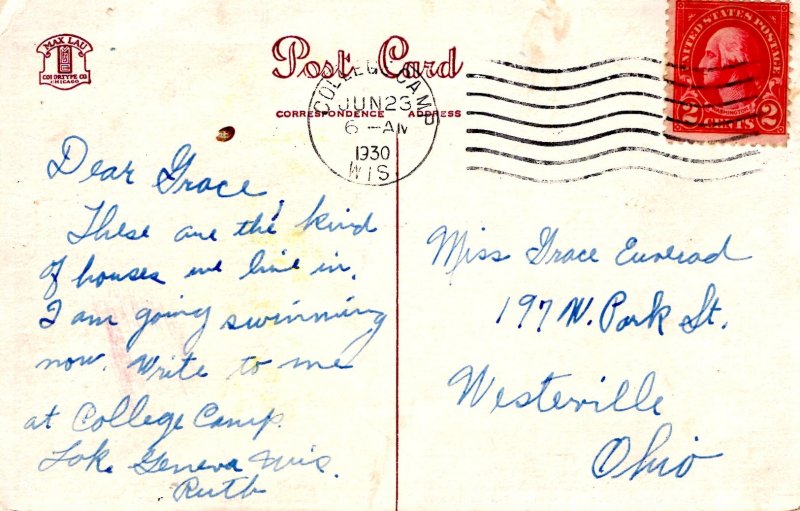 MAX LAU
COLORTYPE CO
CHICAGO
Post Card
CORRESPONDENCE ADDRESS
COLLEGE CAMP
JUN 23
6 - AM
1930
WIS.
UNITED STATES POSTAGE
WASHINGTON
2 CENTS 2
Dear Grace,
These are the kind
of houses we live in.
I am going swimming
now. Write to me
at College Camp
Lake Geneva Wis.
Ruth
Miss Grace
197 W. Park St.
Westerville
Ohio